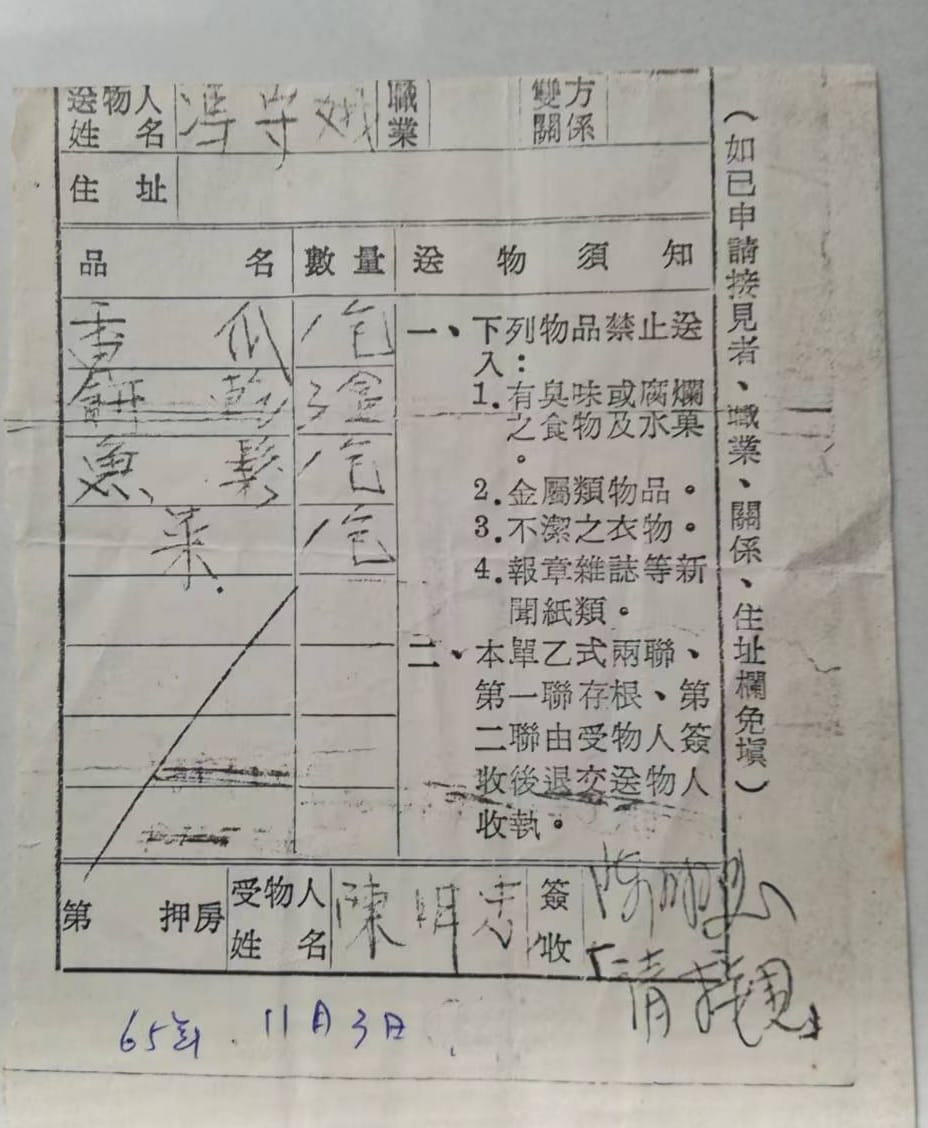 送物人姓名 馮守娥 職業 雙方關係
住址
品名 數量 送物須知
香瓜 1包
餅乾 3盒
魚鬆 1包
菜. 1包
一、下列物品禁止送
入：
1.有臭味或腐爛
之食物及水菓
。
2.金屬類物品。
3.不潔之衣物。
4.報章雜誌等新
聞紙類。
二、本單乙式兩聯、
第一聯存根、第
二聯由受物人簽
收後退交送物人
收執。
（如已申請接見者、職業、關係、住址欄免塡）
第 押房 受物人姓名 陳明忠 簽收 陳明忠
「請接見」
65年.11月3日